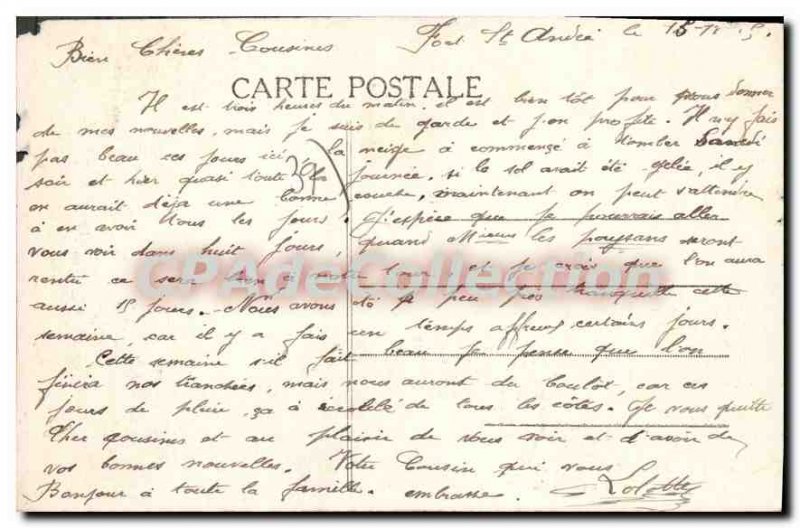 Fort St André le 15-11-15.
Bien Chères Cousines
CARTE POSTALE
Il est trois heures du matin, il est bien tôt pour vous donner
de mes nouvelles, mais je suis de garde et j'en profite. Il n'y fais
pas beau ces jours ici la neige a commencé à tomber Samedi
soir et hier quasi toute la journée, si le sol avait été gelée, il y
en aurait déja une bonne couche, maintenant on peut s'attendre
à en avoir tous les jours. J'espère que je pourrais aller
vous voir dans huit jours, quand les paysans seront
rentré ce sera bien tour et je crois que l'on aura
aussi 15 jours. Nous avons été à peu près tranquille cette
semaine, car il y a fais un temps affreux certains jours.
Cette semaine s'il fait beau je pense que l'on
finira nos tranchées, mais nous auront du boulot, car ces
jours de pluie, ça à de tous les côtés. Je vous quitte
Cher cousines et au plaisir de vous voir et d'avoir de
vos bonnes nouvelles. Votre Cousin qui vous
Bonjour à toute la famille. embrasse. Lolotte
CPAdeCollection